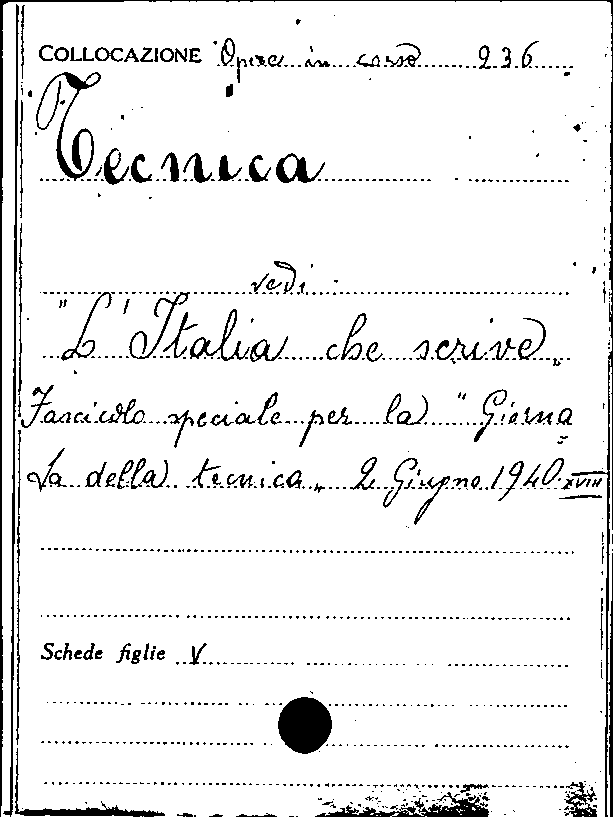 COLLOCAZIONE Opere in corso 236
Tecnica
vedi :
"L'Italia che scrive„
Fascicolo speciale per la "Giorna
ta della tecnica„ 2 Giugno 1940.XVIII
Schede figlie V